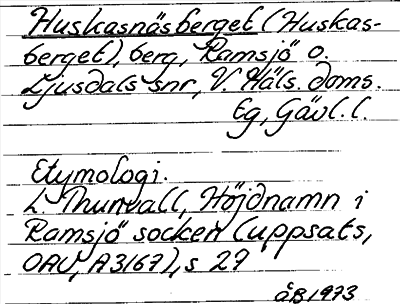 Huskasnäsberget (Huskas-
berget), berg, Ramsjö o.
Ljusdals snr, V. Häls. doms.
Eg, Gävl. l.
Etymologi.
L. Thunvall, Höjdnamn i
Ramsjö socken (uppsats,
OAU, A3167), s 29
ÅB 1973